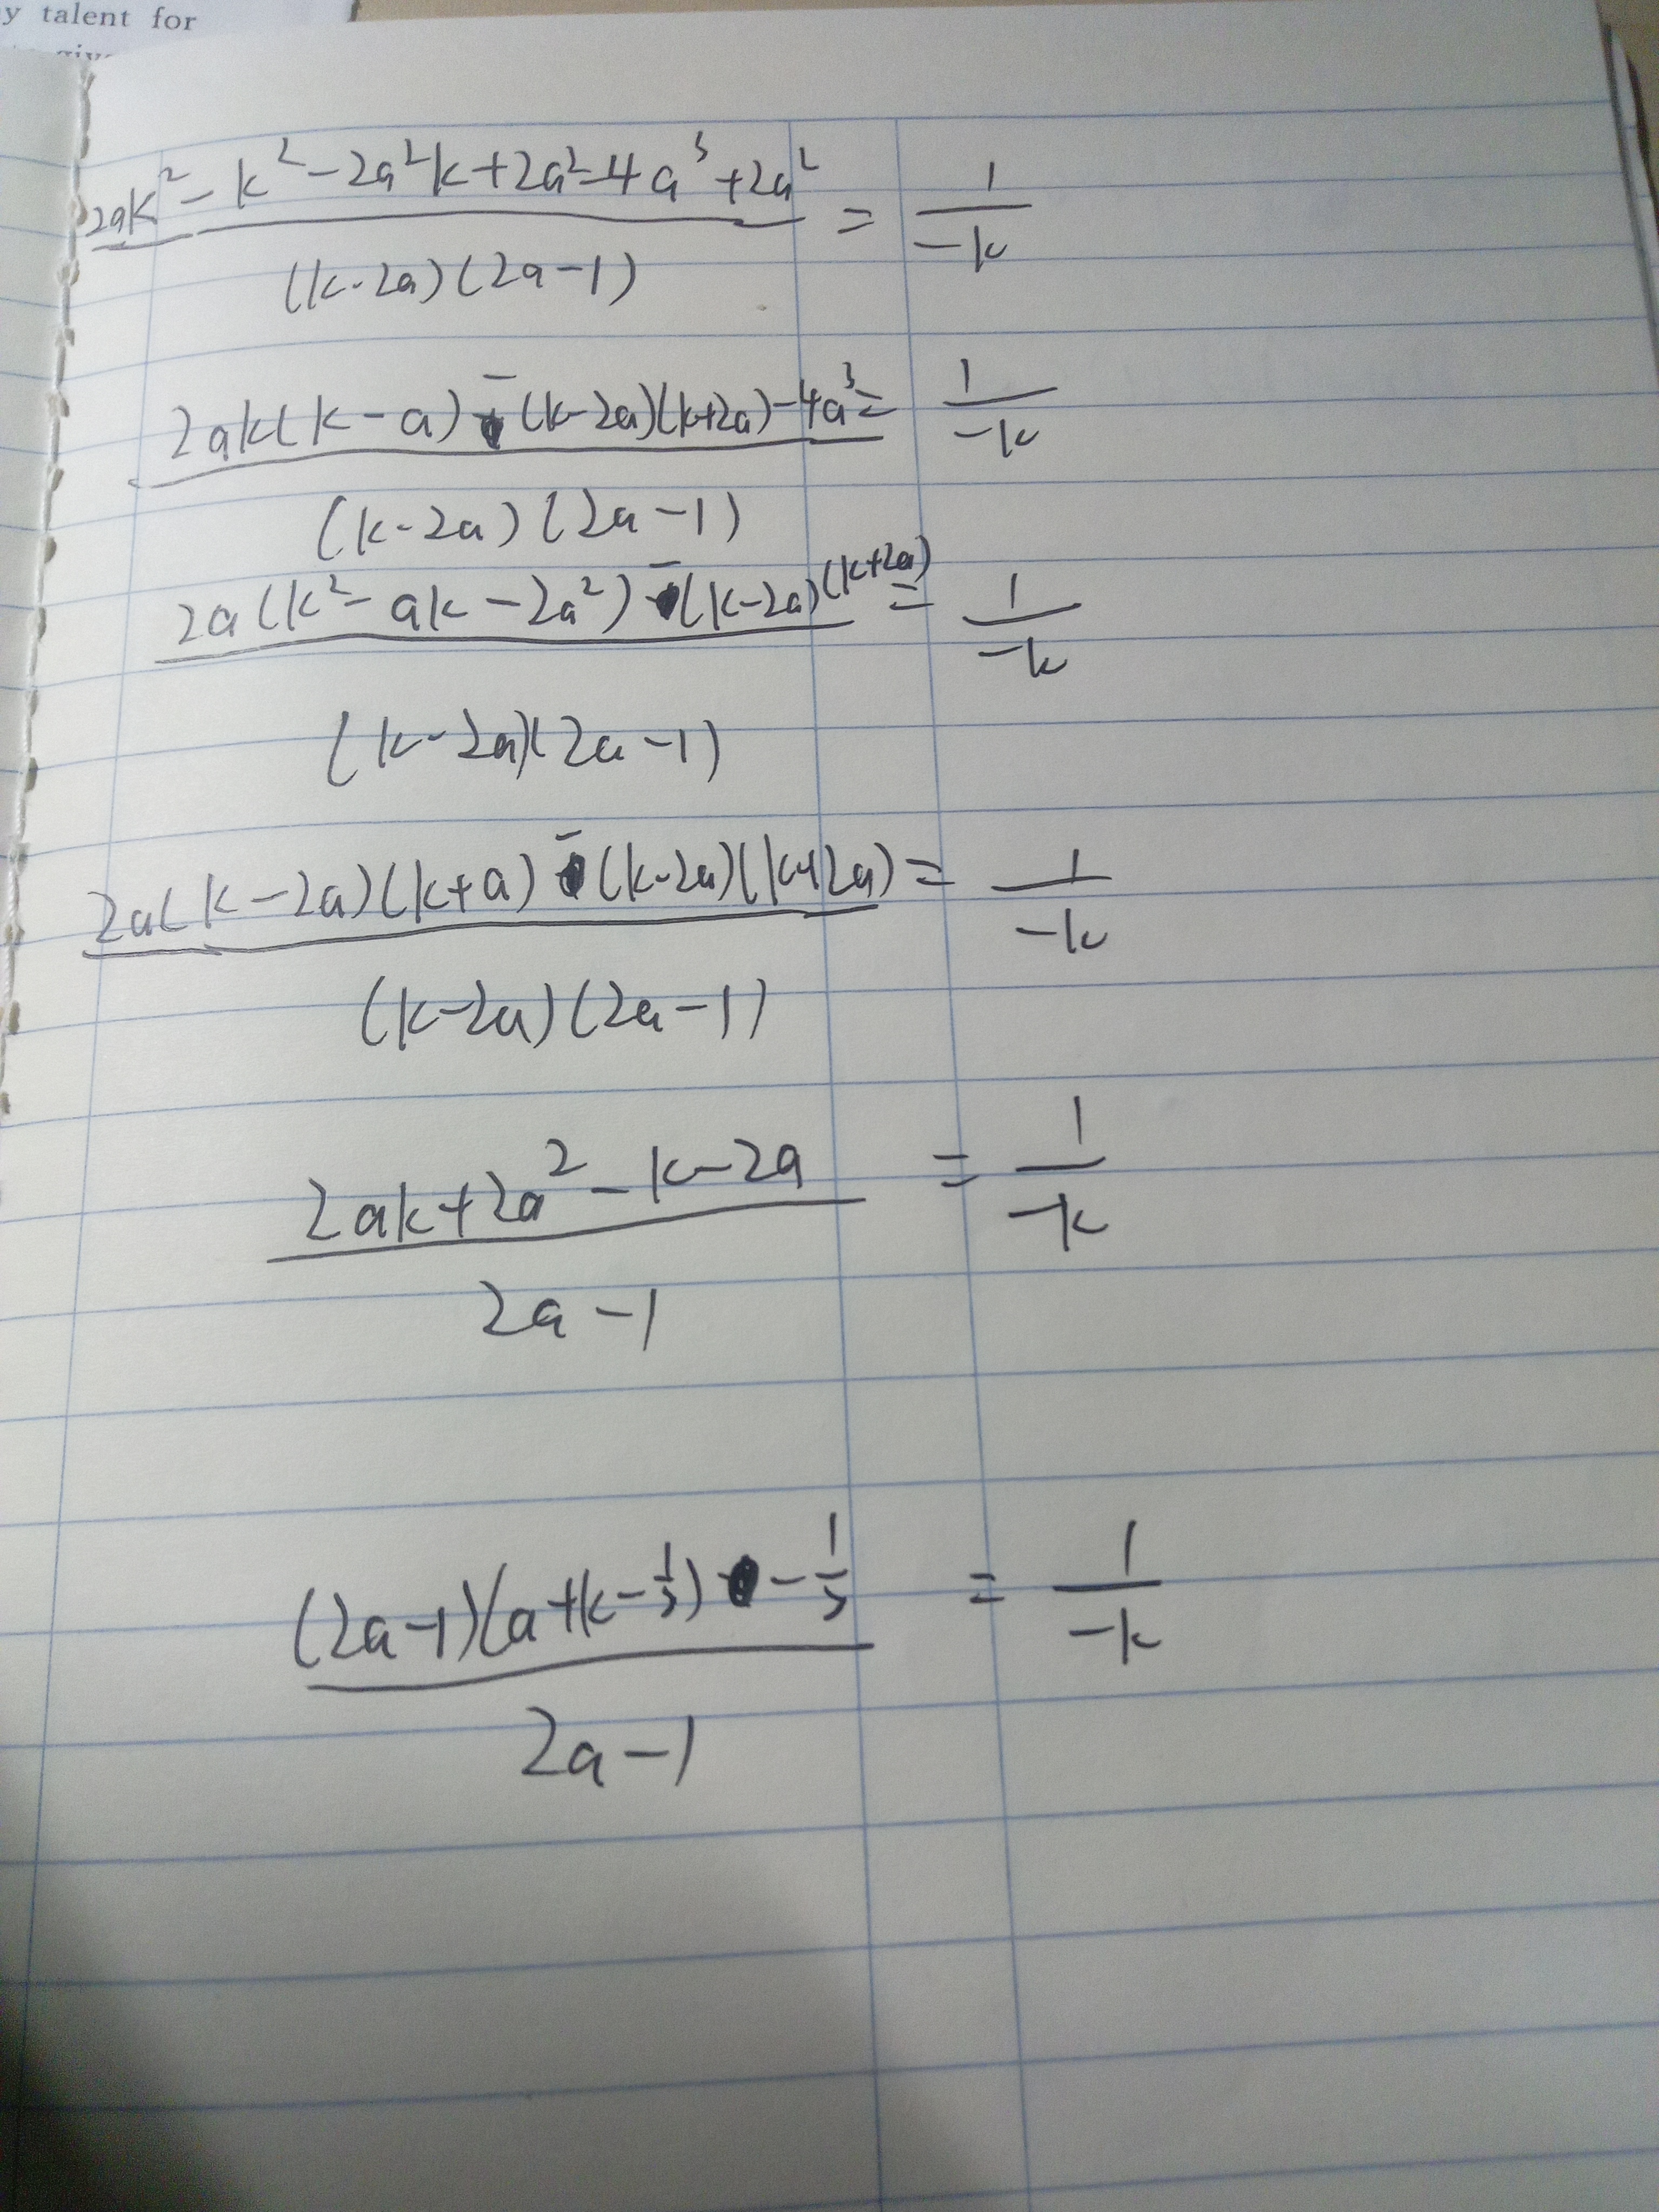 y talent for
give
2ak² - k² - 2a²k + 2a² - 4a³ + 2a² = 1
(k-2a)(2a-1) -k
2ak(k-a) - (k-2a)(k+2a) - 4a³ = 1
(k-2a)(2a-1) -k
2a(k² - ak - 2a²) - (k-2a)(k+2a) = 1
(k-2a)(2a-1) -k
2a(k-2a)(k+a) - (k-2a)(k+2a) = 1
(k-2a)(2a-1) -k
2ak + 2a² - k - 2a = 1
2a-1 -k
(2a-1)(a+k-½) - ½ = 1
2a-1 -k